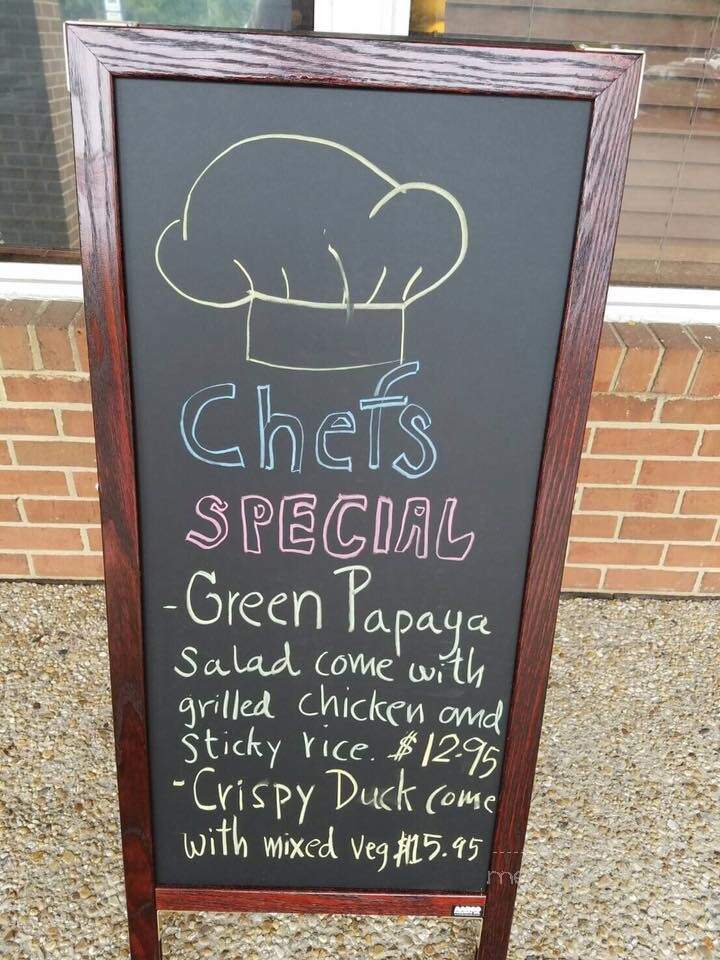 Chefs
SPECIAL
-Green Papaya
Salad come with
grilled chicken and
Sticky rice. $12.95
-Crispy Duck come
with mixed veg $15.95